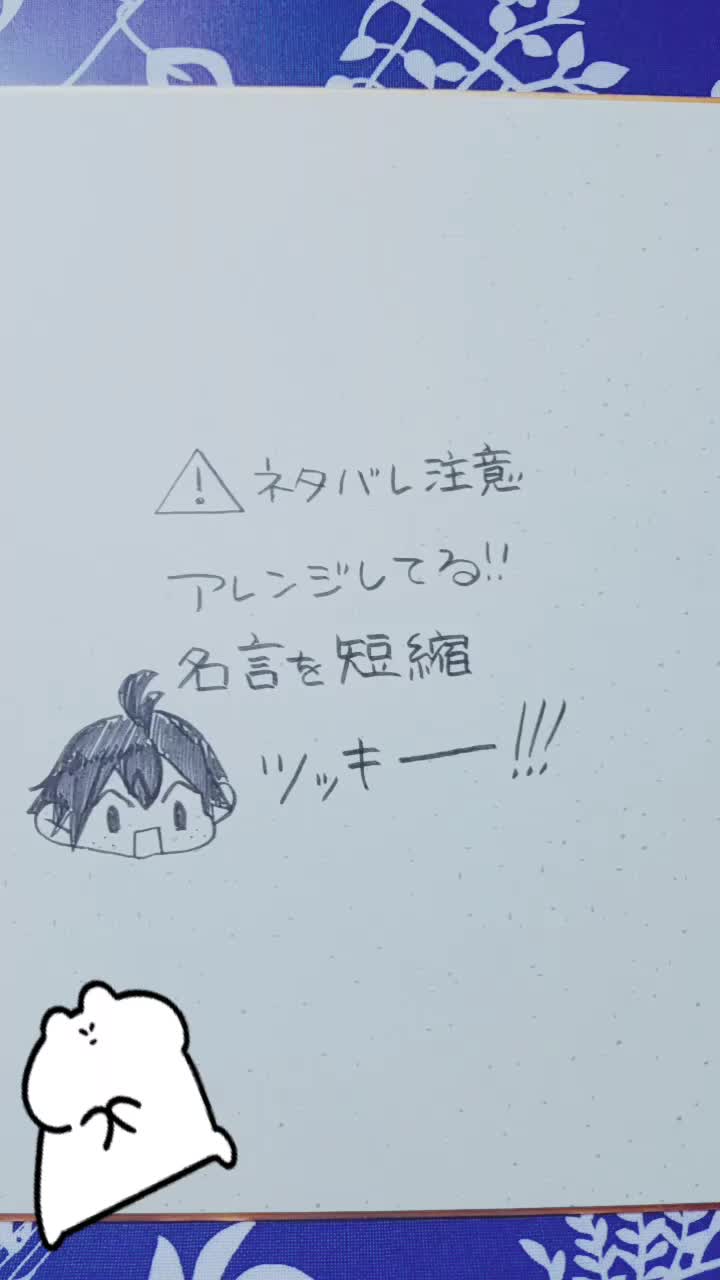 ⚠ネタバレ注意
アレンジしてる!!
名言を短縮
ツッキー!!!